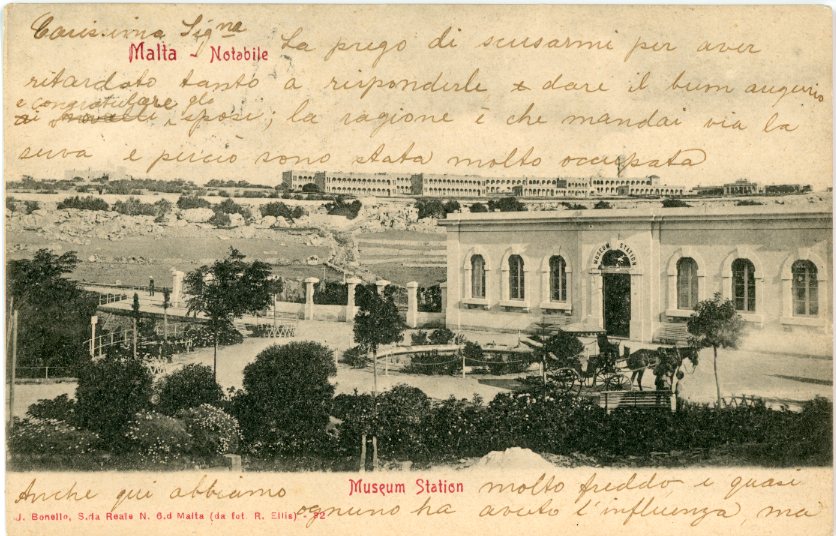 Carissima Signa
Malta - Notabile
La prego di scusarmi per aver
ritardato tanto a risponderle e dare il buon augurio
e congratulare glo
ai novelli sposi; la ragione è che mandai via la
serva e perciò sono stata molto occupata
MUSEUM STATION
Museum Station
Anche qui abbiamo molto freddo e quasi
ognuno ha avuto l'influenza, ma
J. Bonello, S.da Reale N. 6.d Malta (da fot. R. Ellis) - 52